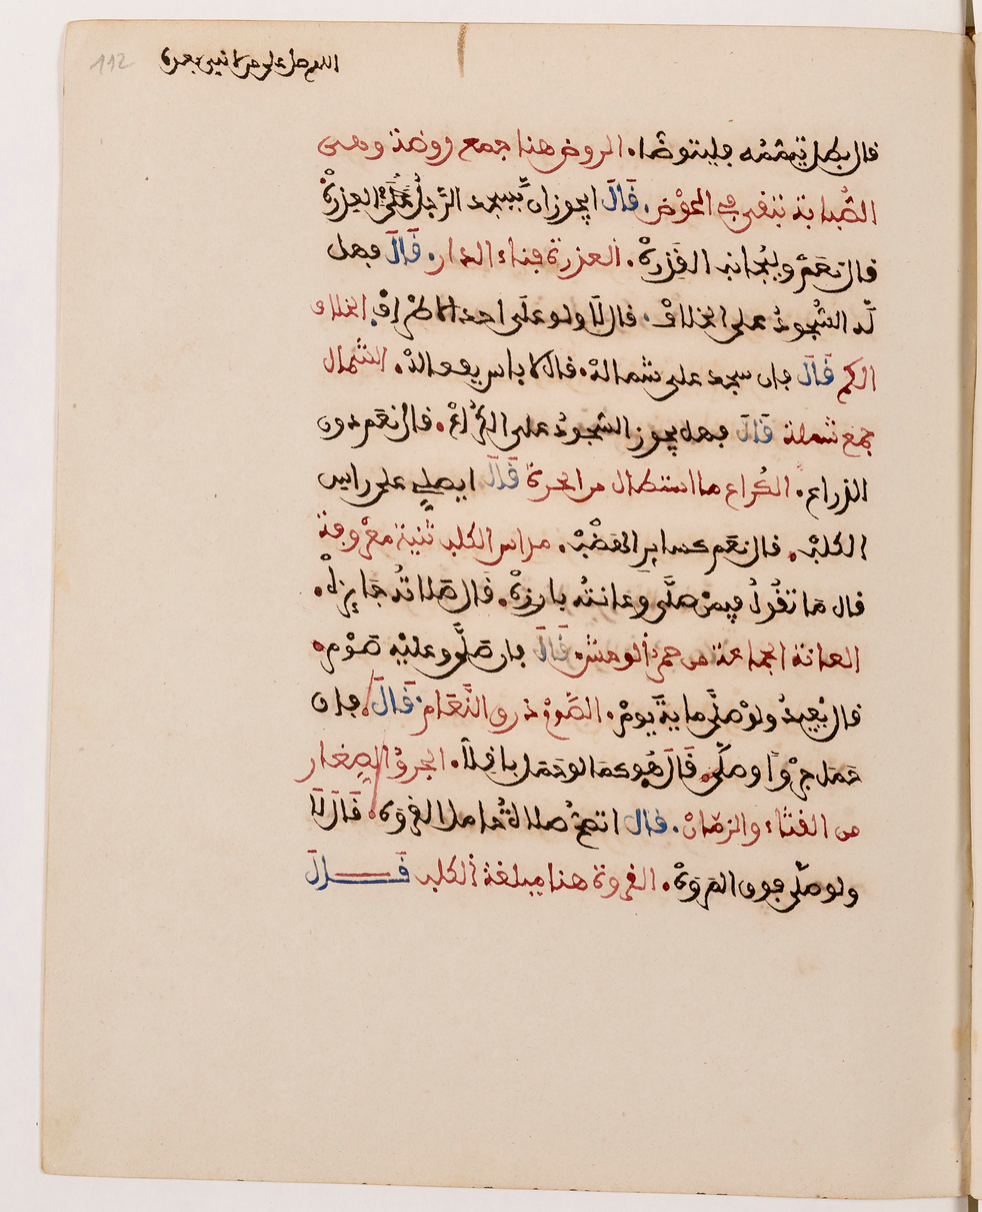 112
اللهم صل على من لا نبي بعده
قال بطل تيممه فليتوضا. الروض هنا جمع روضة وهي
الصبابة تبقى في الحوض. قال ايجوز ان يسجد الرجل على العذرة
قال نعم وليجانب القذرة. العذرة فناء الدار. قال فهل
له السجود على الخلاف. قال لا ولو على احد الاطراف. الخلاف
الكم قال فان سجد على شماله. قال لا باس بفعاله. الشمال
جمع شملة قال فهل يجوز السجود على الكراع. قال نعم دون
الذراع. الكراع ما استطال من الحرة قال ايصلي على راس
الكلب. قال نعم كسائر الهضب. راس الكلب ثنية معروفة
قال ما تقول فيمن صلى وعانته بارزة. قال صلاته جايزة.
العانة الجماعة من حمر الوحش. قال فان صلى وعليه صوم.
قال يعيد ولو صلى ماية يوم. الصوم ذرق النعام. قال فان
حمل جروا وصلى. قال هو كما لو حمل باقلا. الجرو الصغار
من القثاء والرمان. قال اتصح صلاة حامل القروة. قال لا
ولو صلى فوق المروة. القروة هنا ميلغة الكلب قال